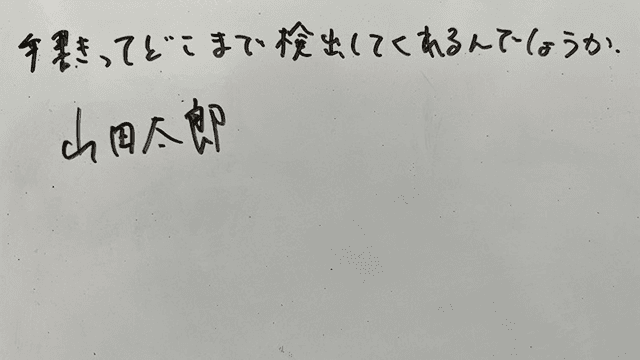 手書きってどこまで検出してくれるんでしょうか.
山田太郎